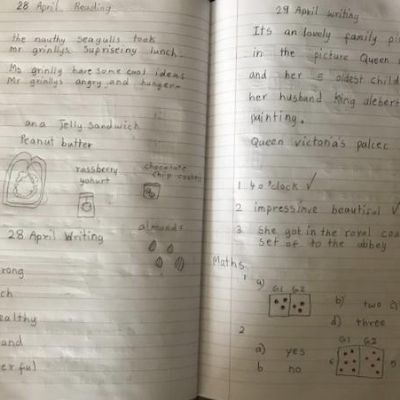 28 April Reading
the nauthy seagulls took
mr grinllys Supriseiny lunch.
Ms grinlig have some cool ideas
Mr grinllys angry and hunger
and Jelly Sandwich
Peanut butter
rassberry
yohurt
chocolate
chip cookies
almunds
28 April Writing
rong
ch
ealthy
and
erful
29 April writing
Its an lovely family
in the picture Queen
and her 5 oldest child
her husband King alebert
painting.
Queen victoria's palcec
1 4 o'clock ✓
2 impressinve beautiful ✓
3 She got in the royal
set of to the abbey
Maths
1
a) G1 G2
b) two
d) three
2
a) yes
b no
G1 G2
6 5